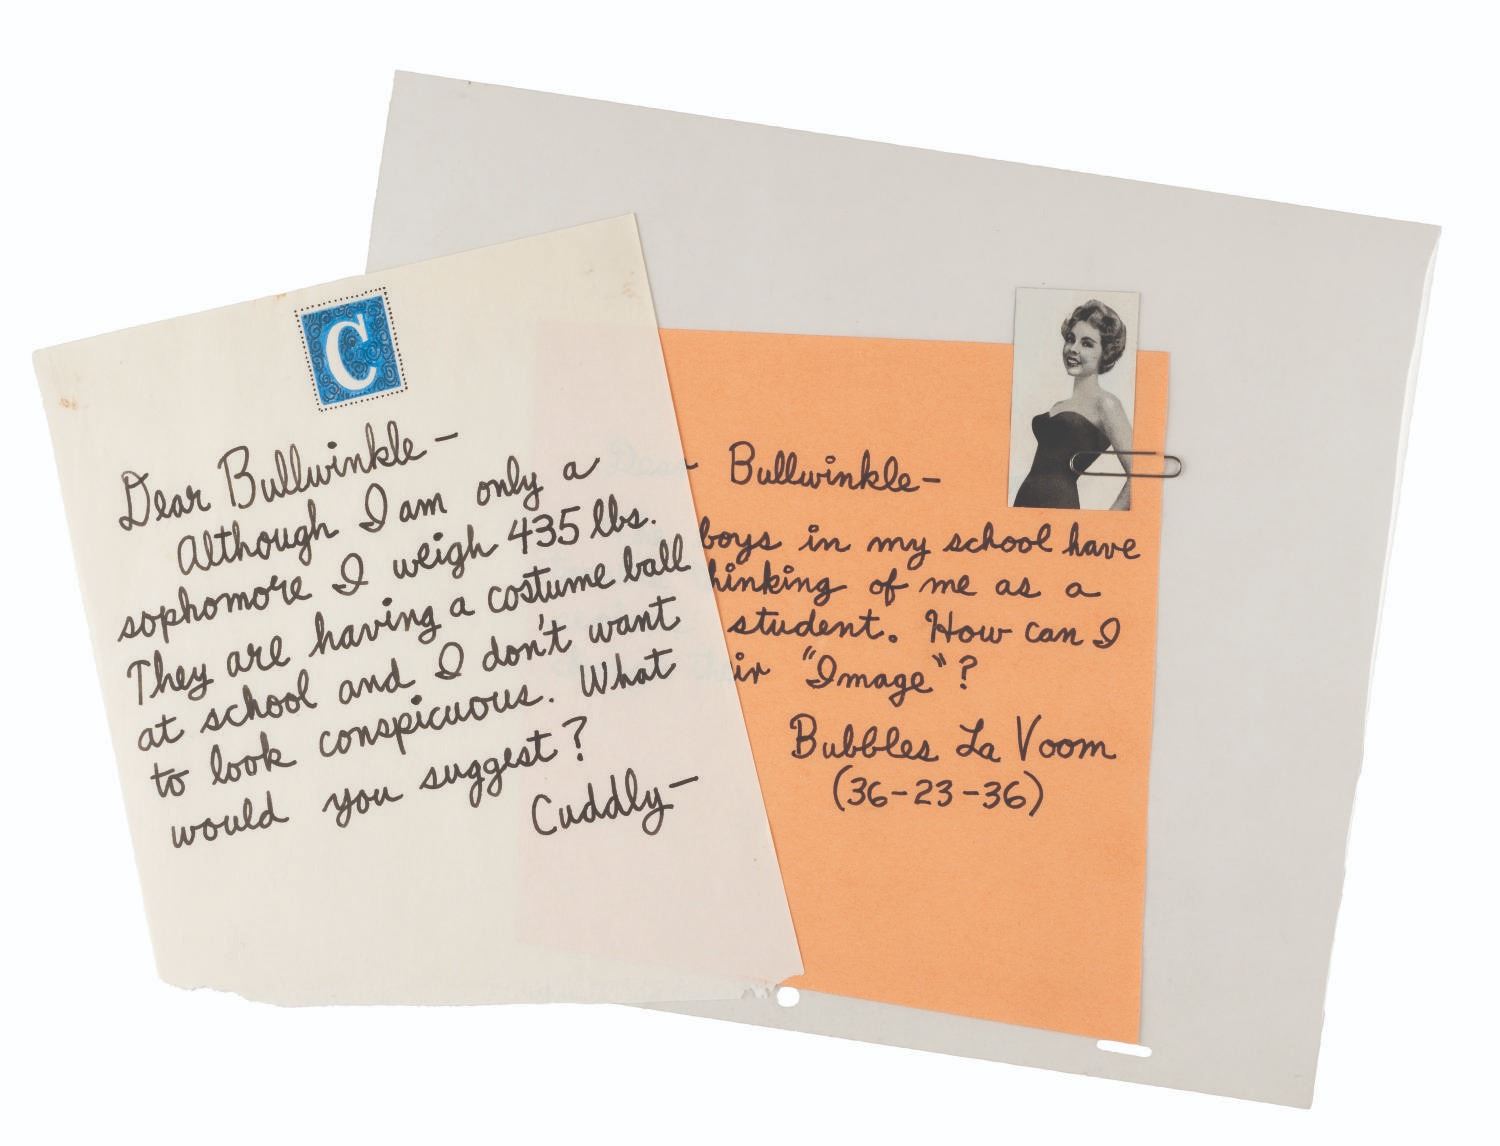 C
Dear Bullwinkle—
Although I am only a
sophomore I weigh 435 lbs.
They are having a costume ball
at school and I don't want
to look conspicuous. What
would you suggest?
Cuddly—
Dear Bullwinkle—
boys in my school have
hinking of me as a
student. How can I
their "Image"?
Bubbles La Voom
(36-23-36)